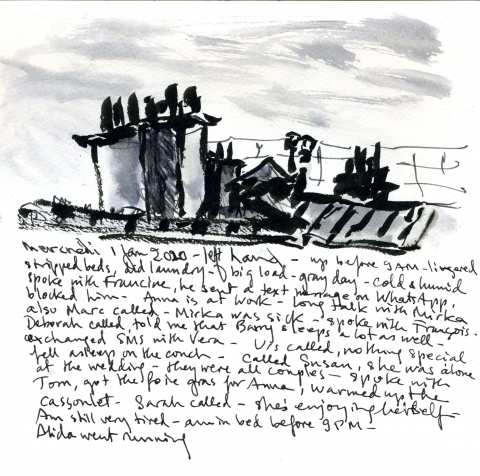 mercredi 1 Jan 2020 - left hand - up before 9 AM - lingered
stripped beds, did laundry - 1 big load - gray day - cold & humid
spoke with Francine, he sent a text message on WhatsApp,
blocked him - Anna is at work - long talk with Mirka
also Marc called - Mirka was sick - spoke with François -
Deborah called, told me that Barry sleeps a lot as well -
exchanged SMS with Vera - Uis called, nothing special
fell asleep on the couch - called Susan, she was alone
at the wedding - they were all couples - spoke with
Tom, got the foie gras for Anna, warmed up the
cassoulet - Sarah called - she's enjoying herself -
Am still very tired - am in bed before 9 PM -
Alida went running